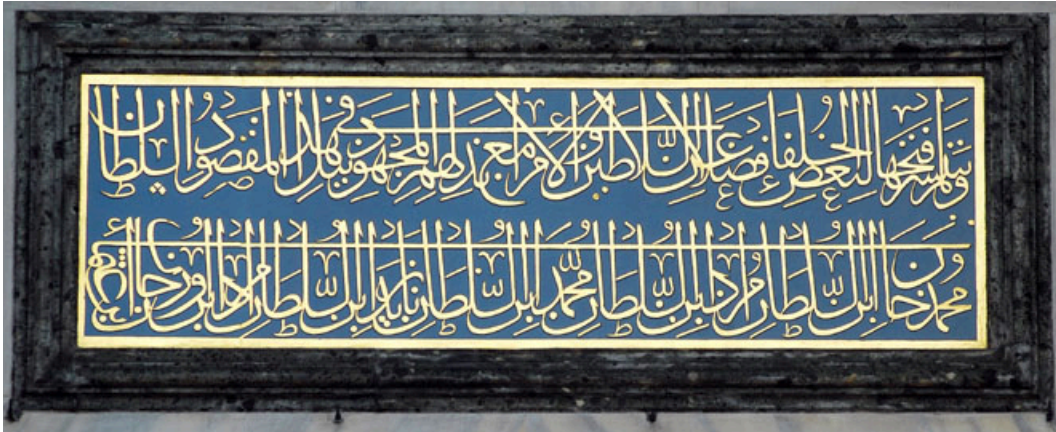 ولم يتيسر فتحها لبعض الخلفا فضلا عن السلاطين والامرا مع بذلهم المجهود في نيل هذا المقصود السلطان
محمد خان ابن السلطان مراد ابن السلطان محمد ابن السلطان بايزيد ابن السلطان مراد ابن اورخان ابن عثمان